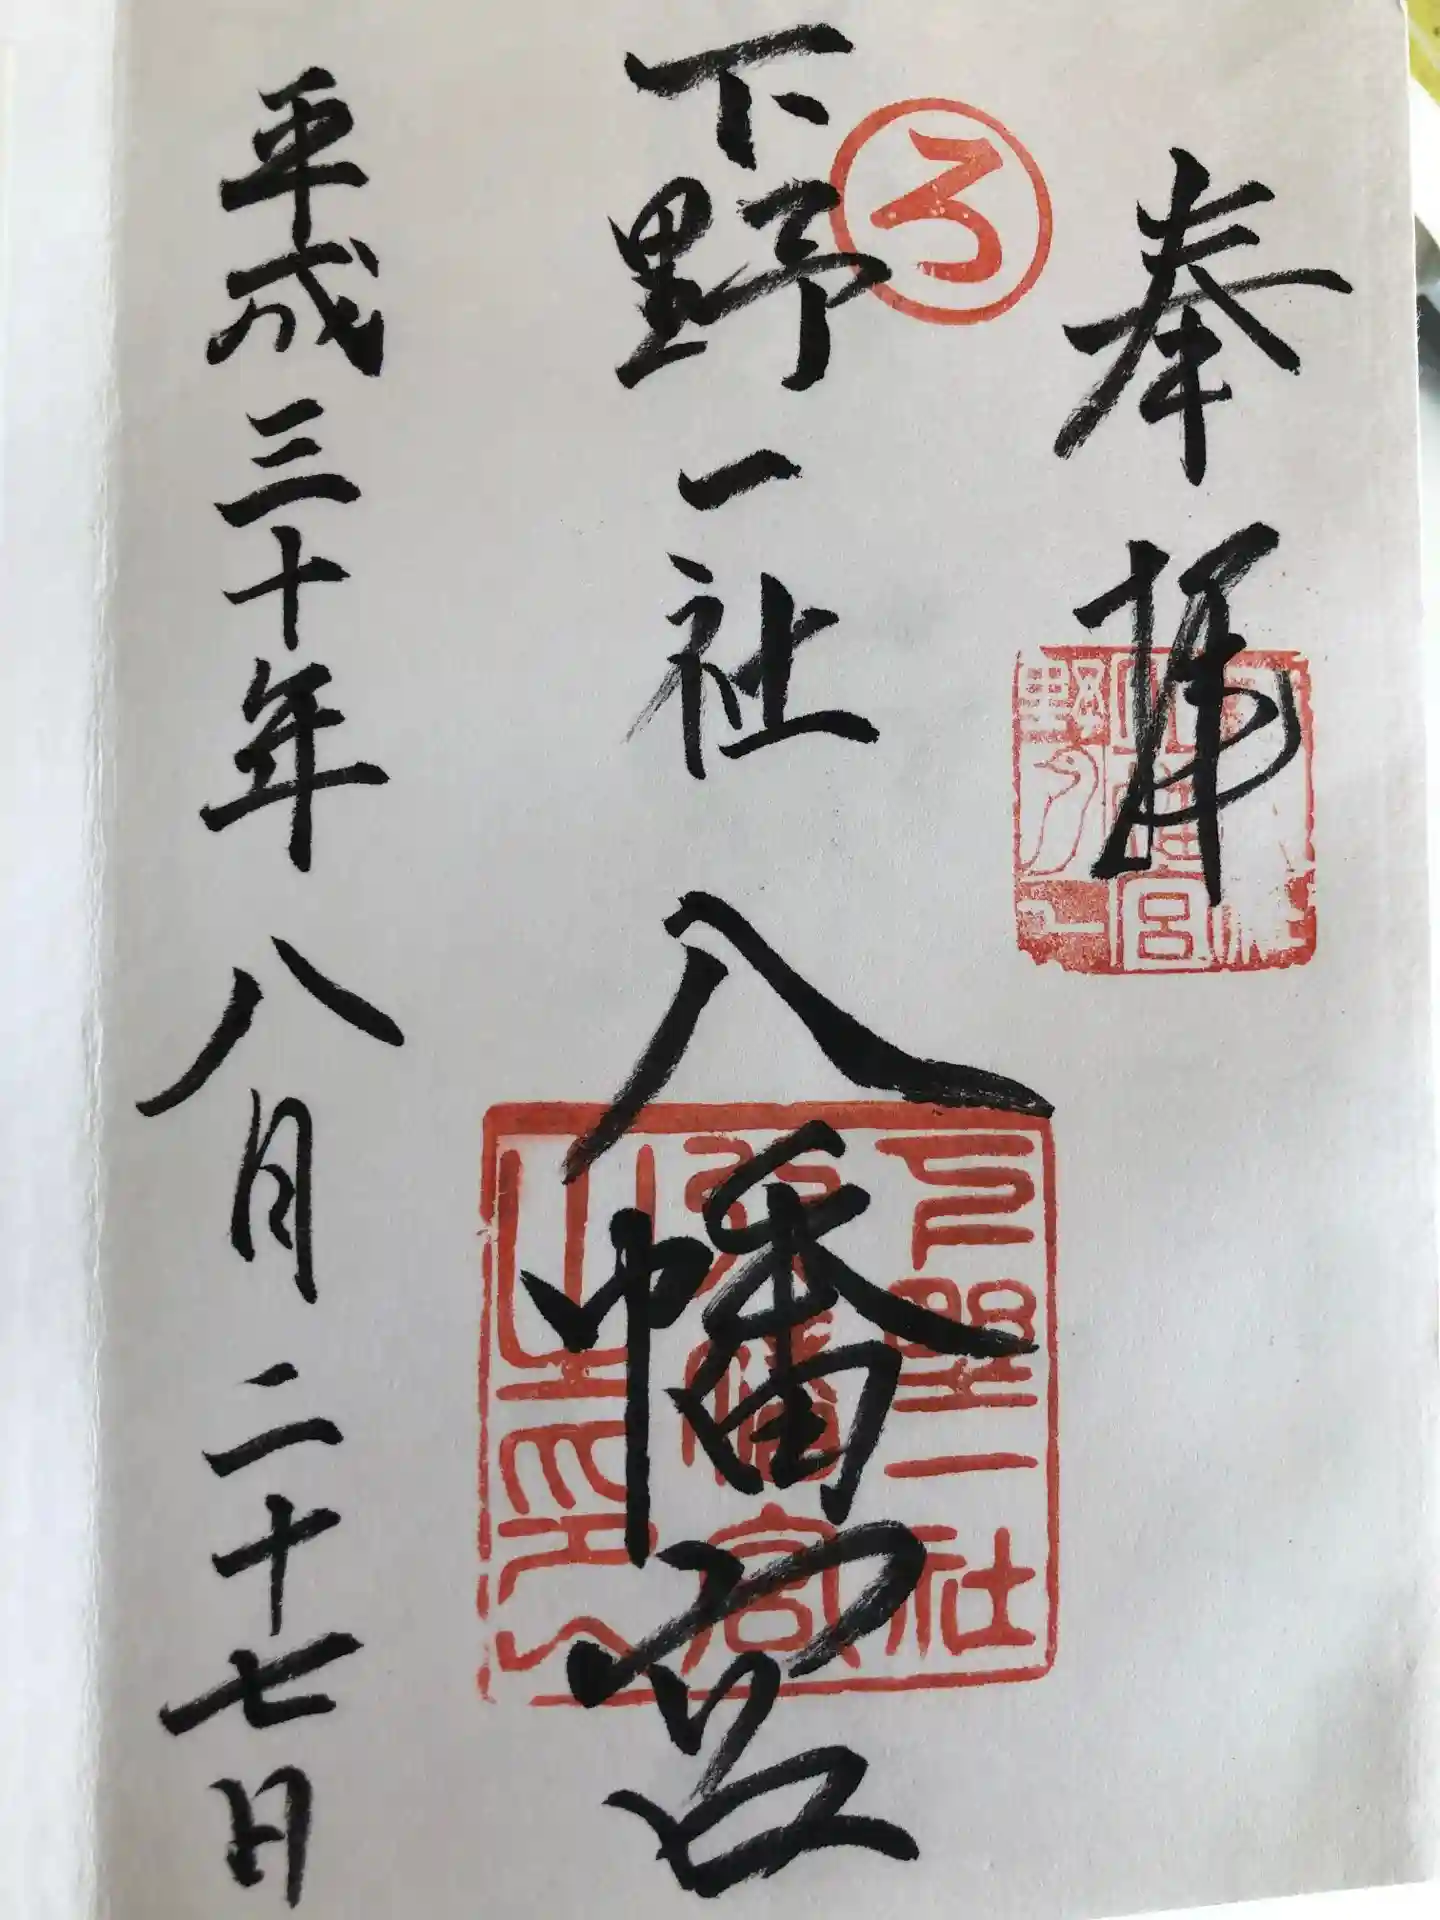 奉拝
ろ
下野一社八幡宮
下野一社
八幡宮
之印
平成三十年八月二十七日